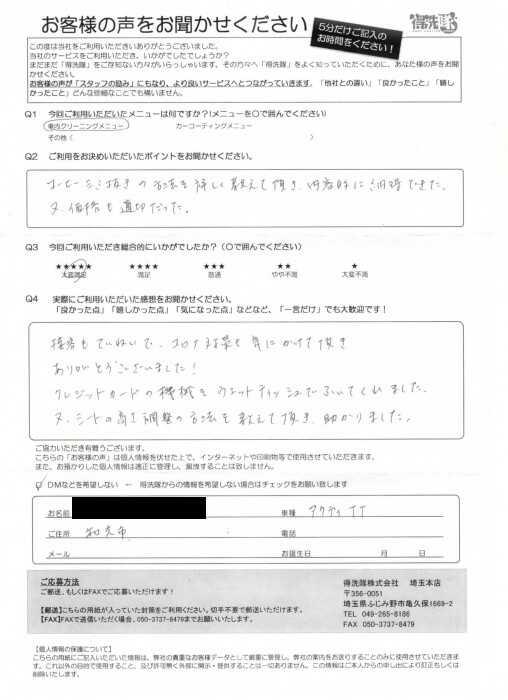 お客様の声をお聞かせください
5分だけご記入の
お時間をください!
得洗隊
この度は当社をご利用いただきありがとうございました。
当社のサービスをご利用いただき、いかがでしたでしょうか?
まだまだ「得洗隊」をご存知ない方々がいらっしゃいます。その方々へ「得洗隊」をよく知っていただくために、あなた様の声をお聞かせください。
お客様の声が「スタッフの励み」にもなり、より良いサービスへとつながっていきます。「他社との違い」「良かったこと」「嬉しかったこと」どんな些細なことでも構いません。
Q1 今回ご利用いただいたメニューは何ですか?(メニューを○で囲んでください)
車内クリーニングメニュー カーコーティングメニュー
その他( )
Q2 ご利用をお決めいただいたポイントをお聞かせください。
コーヒーシミ抜きの方法を詳しく教えて頂き、内容的に納得できた。
又、価格も適切だった。
Q3 今回ご利用いただき総合的にいかがでしたか?(○で囲んでください)
★★★★★ ★★★★ ★★★ ★★ ★
大変満足 満足 普通 やや不満 大変不満
Q4 実際にご利用いただいた感想をお聞かせください。
「良かった点」「嬉しかった点」「気になった点」などなど、「一言だけ」でも大歓迎です!
接客もていねいで、コロナ対策も気にかけて頂き
ありがとうございました!
クレジットカードの機械もウェットティッシュでふいてくれました。
又、シートの高さ調整の方法を教えて頂き、助かりました。
ご協力いただき有難うございます。
こちらの「お客様の声」は個人情報を伏せた上で、インターネットや印刷物等で使用させていただきます。
また、お預かりした個人情報は適正に管理し、漏洩することは致しません。
DMなどを希望しない ← 得洗隊からの情報を希望しない場合はチェックをお願い致します
お名前 車種 アクティTT
ご住所 和光市 電話
メール お誕生日 月 日
ご応募方法
ご郵送、もしくはFAXでご応募いただけます!
【郵送】こちらの用紙が入っていた封筒をご利用ください。切手不要で郵送いただけます。
【FAX】FAXで送信いただく場合、050-3737-8479までお願いいたします。
得洗隊株式会社 埼玉本店
〒356-0051
埼玉県ふじみ野市亀久保1669-2
TEL 049-265-8186
FAX 050-3737-8479
【個人情報の保護について】
こちらの用紙にご記入いただいた情報は、弊社の貴重なお客様データとして厳重に管理し、弊社の案内をお送りすることのみに使用させていただきます。これ以外の目的で使用すること、及び許可無く外部に開示・提供することは一切ありません。この情報はご本人からの申し出により訂正もしくは削除いたします。